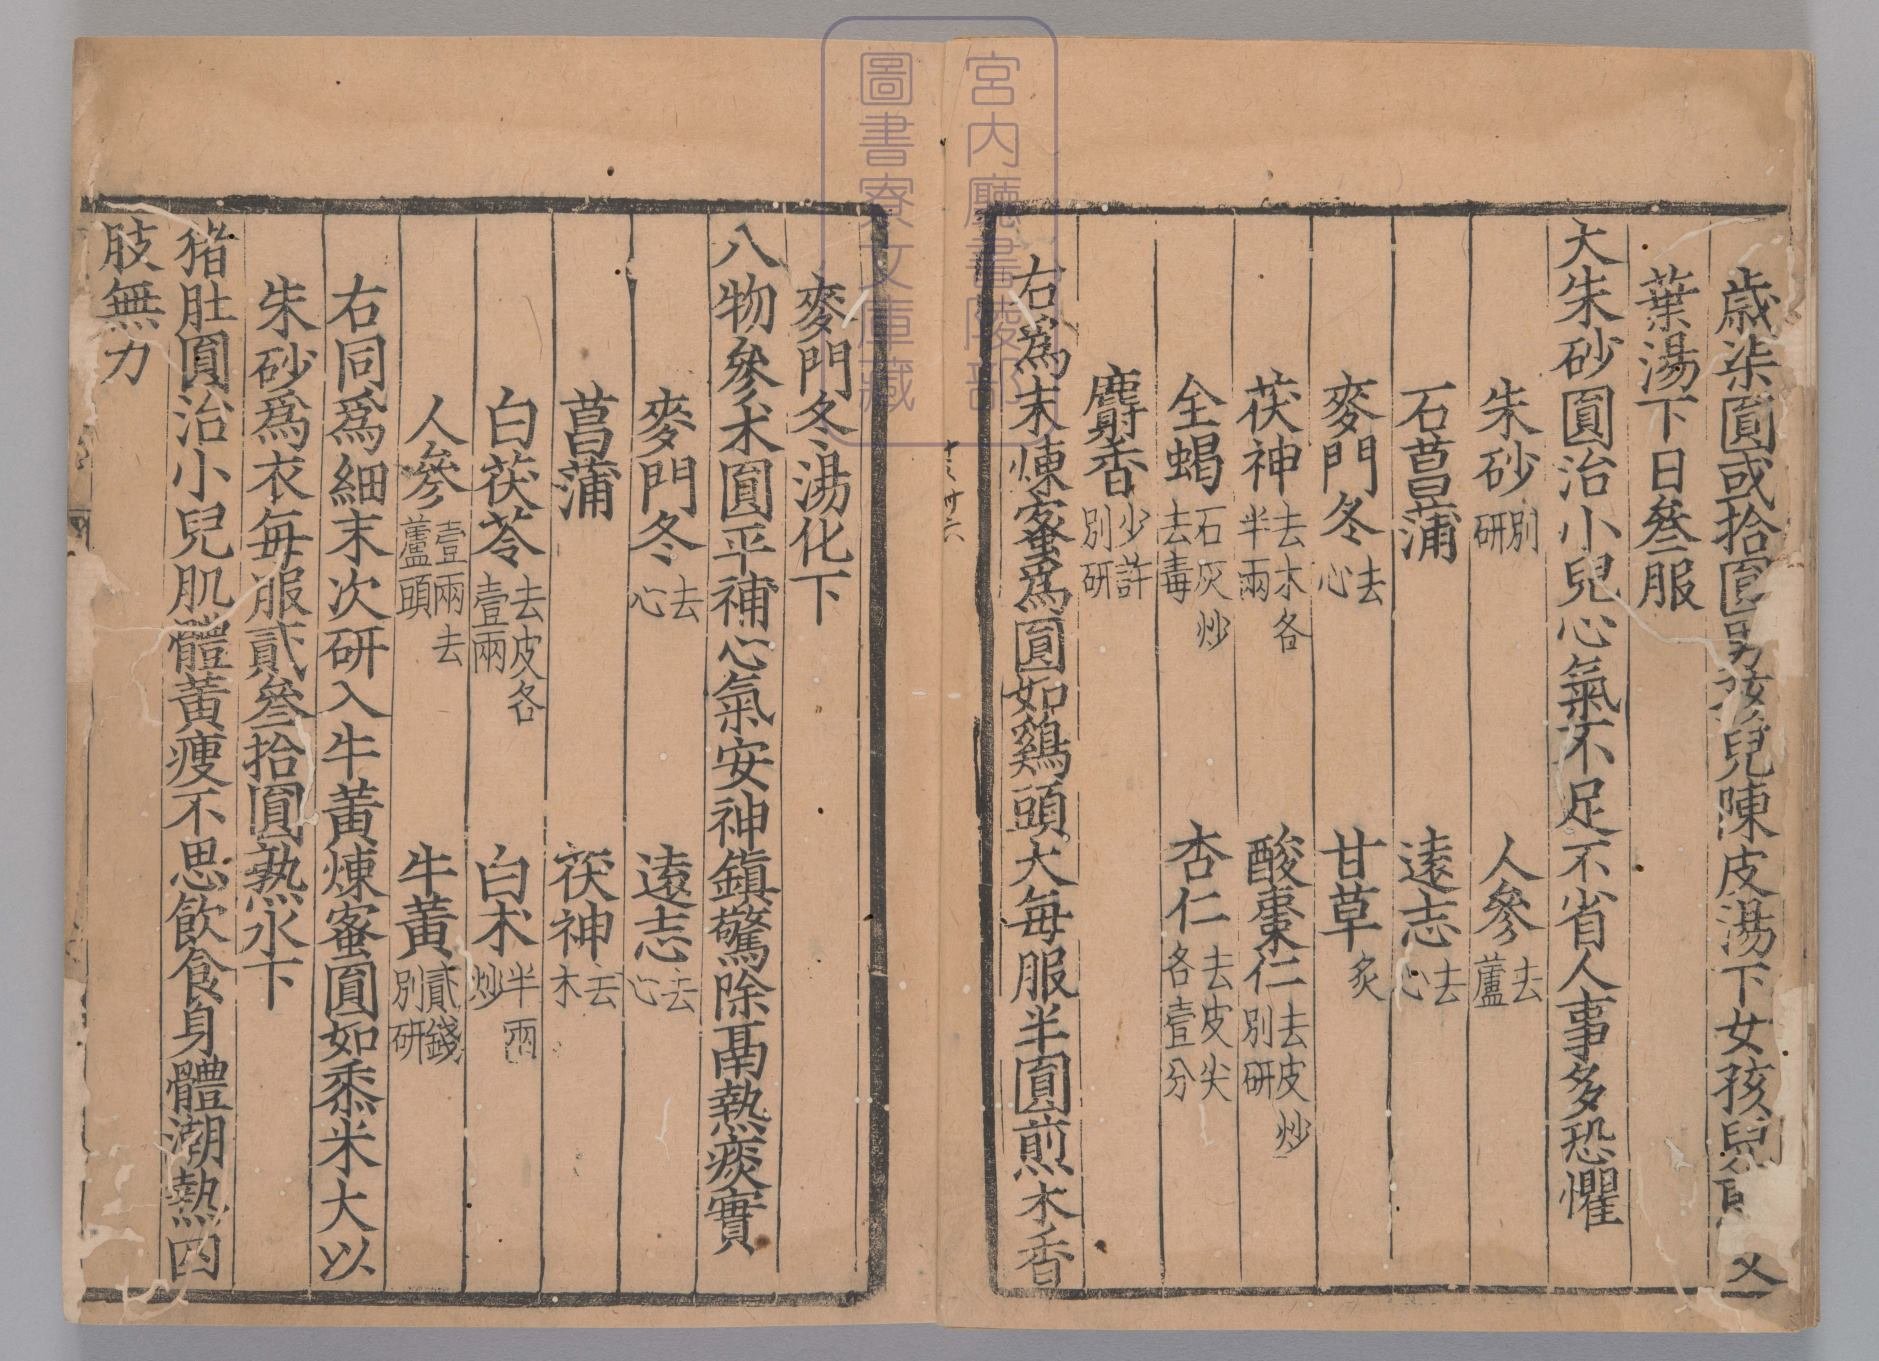 歲柒圓或拾圓男孩兒陳皮湯下女孩兒
葉湯下日叄服
大朱砂圓治小兒心氣不足不省人事多恐懼
朱砂別研 人參去蘆
石菖蒲 遠志去心
麥門冬去心 甘草炙
茯神去木各半兩 酸棗仁去皮炒別研
全蝎石灰炒去毒 杏仁去皮尖各壹分
麝香少許別研
右爲末煉蜜爲圓如鷄頭大每服半圓煎木香
麥門冬湯化下
八物參朮圓平補心氣安神鎭驚除鬲熱痰實
麥門冬去心 遠志去心
菖蒲 茯神去木
白茯苓去皮各壹兩 白朮半兩炒
人參壹兩去蘆頭 牛黃貳錢別研
右同爲細末次研入牛黃煉蜜圓如黍米大以
朱砂爲衣每服貳叄拾圓熟水下
猪肚圓治小兒肌體黃瘦不思飮食身體潮熱四
肢無力
宮内廳書陵部
圖書寮文庫藏